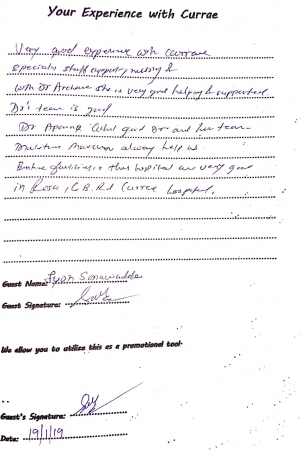 Your Experience with Currae
Very good experience with Currae
specialy staff support, nursing &
with Dr Archana she is very good helping & supported.
Dr's team is good
Dr Aparna also good Dr and her team
always help us.
Entire facilities in this hospital are very good
in G.B. Rd Currae hospital.
Guest Name: Jyoti
Guest Signature:
We allow you to utilize this as a promotional tool-
Guest's Signature:
Date: 19/1/19